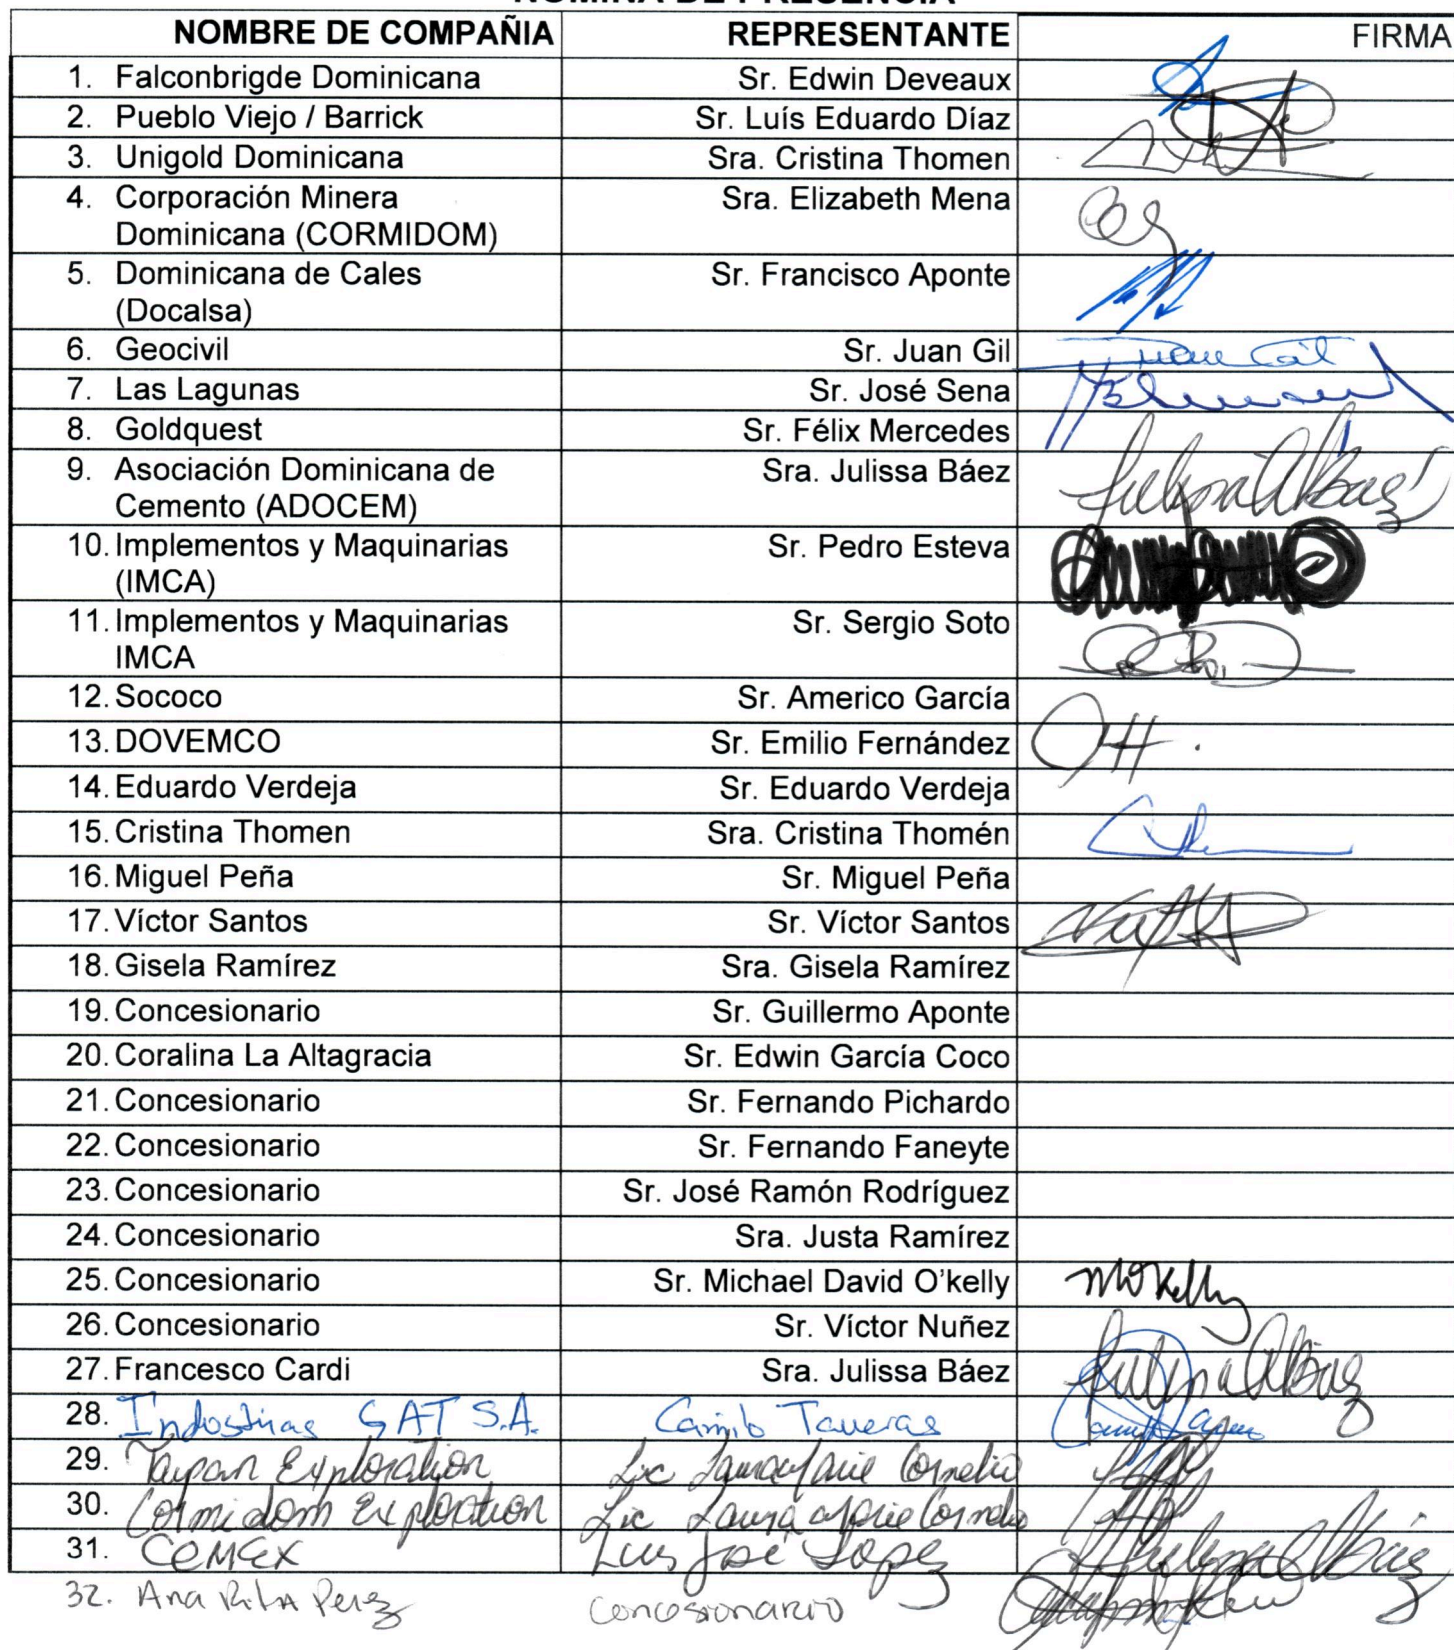 NOMINA DE PRESENCIA
NOMBRE DE COMPAÑIA REPRESENTANTE FIRMA
1. Falconbrigde Dominicana Sr. Edwin Deveaux
2. Pueblo Viejo / Barrick Sr. Luís Eduardo Díaz
3. Unigold Dominicana Sra. Cristina Thomen
4. Corporación Minera Sra. Elizabeth Mena
Dominicana (CORMIDOM)
5. Dominicana de Cales Sr. Francisco Aponte
(Docalsa)
6. Geocivil Sr. Juan Gil
7. Las Lagunas Sr. José Sena
8. Goldquest Sr. Félix Mercedes
9. Asociación Dominicana de Sra. Julissa Báez
Cemento (ADOCEM)
10. Implementos y Maquinarias Sr. Pedro Esteva
(IMCA)
11. Implementos y Maquinarias Sr. Sergio Soto
IMCA
12. Sococo Sr. Americo García
13. DOVEMCO Sr. Emilio Fernández
14. Eduardo Verdeja Sr. Eduardo Verdeja
15. Cristina Thomen Sra. Cristina Thomén
16. Miguel Peña Sr. Miguel Peña
17. Víctor Santos Sr. Víctor Santos
18. Gisela Ramírez Sra. Gisela Ramírez
19. Concesionario Sr. Guillermo Aponte
20. Coralina La Altagracia Sr. Edwin García Coco
21. Concesionario Sr. Fernando Pichardo
22. Concesionario Sr. Fernando Faneyte
23. Concesionario Sr. José Ramón Rodríguez
24. Concesionario Sra. Justa Ramírez
25. Concesionario Sr. Michael David O'kelly MOKelly
26. Concesionario Sr. Víctor Nuñez
27. Francesco Cardi Sra. Julissa Báez
28. Indostrias GAT S.A. Camilo Taveras
29. Taupan Exploration Lic Laura Marie Cornelio
30. Cormidom Exploration Lic Laura Marie Cornelio
31. CEMEX Luis José Lopez
32. Ana Rita Perez Concesionario